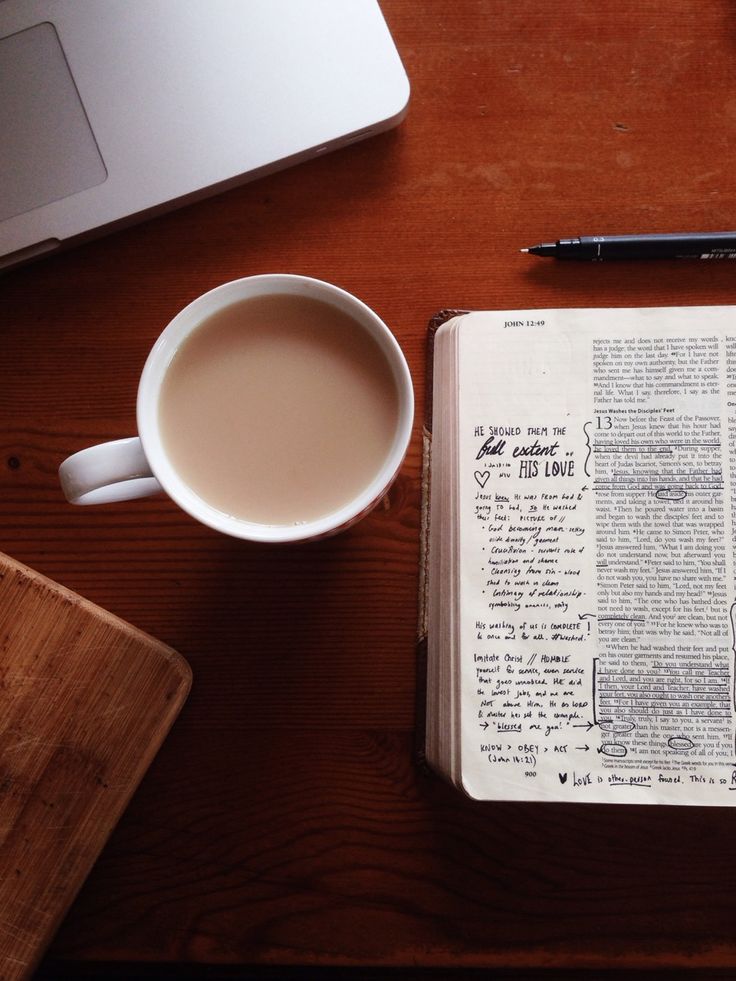 0.3
MITSUBISHI
JOHN 12:49
rejects me and does not receive my words
has a judge; the word that I have spoken will
judge him on the last day. 49For I have not
spoken on my own authority, but the Father
who sent me has himself given me a com-
mandment—what to say and what to speak.
50And I know that his commandment is eter-
nal life. What I say, therefore, I say as the
Father has told me."
Jesus Washes the Disciples' Feet
13 Now before the Feast of the Passover,
when Jesus knew that his hour had
come to depart out of this world to the Father,
having loved his own who were in the world,
he loved them to the end. 2During supper,
when the devil had already put it into the
heart of Judas Iscariot, Simon's son, to betray
him, 3Jesus, knowing that the Father had
given all things into his hands, and that he had
come from God and was going back to God,
4rose from supper. He laid aside his outer gar-
ments, and taking a towel, tied it around his
waist. 5Then he poured water into a basin
and began to wash the disciples' feet and to
wipe them with the towel that was wrapped
around him. 6He came to Simon Peter, who
said to him, "Lord, do you wash my feet?"
7Jesus answered him, "What I am doing you
do not understand now, but afterward you
will understand." 8Peter said to him, "You shall
never wash my feet." Jesus answered him, "If I
do not wash you, you have no share with me."
9Simon Peter said to him, "Lord, not my feet
only but also my hands and my head!" 10Jesus
said to him, "The one who has bathed does
not need to wash, except for his feet, but is
completely clean. And you are clean, but not
every one of you." 11For he knew who was to
betray him; that was why he said, "Not all of
you are clean."
12When he had washed their feet and put
on his outer garments and resumed his place,
he said to them, "Do you understand what
I have done to you? 13You call me Teacher
and Lord, and you are right, for so I am. 14If
I then, your Lord and Teacher, have washed
your feet, you also ought to wash one another's
feet. 15For I have given you an example, that
you also should do just as I have done to
you. 16Truly, truly, I say to you, a servant is
not greater than his master, nor is a messen-
ger greater than the one who sent him. 17If
you know these things, blessed are you if you
do them. 18I am not speaking of all of you; I
HE SHOWED THEM THE
full extent OF
HIS LOVE
NIV
Jesus knew HE WAS FROM God &
going TO God, so He washed
their feet: PICTURE OF //
• God becoming man - setting
aside divinity / garment
• Crucifixion -
humiliation and shame
• Cleansing from sin - blood
shed to wash us clean
• Intimacy of relationship -
symbolising oneness, unity
His washing of us is COMPLETE !
& once and for all. #washed.
Imitate Christ // HUMBLE
yourself for service, even service
that goes unnoticed. HE did
the lowest jobs, and we are
NOT above Him. He as LORD
& master has set the example.
→ "blessed are you!" →
KNOW > OBEY > ACT →
900
♥ LOVE is other-person focused. This is so